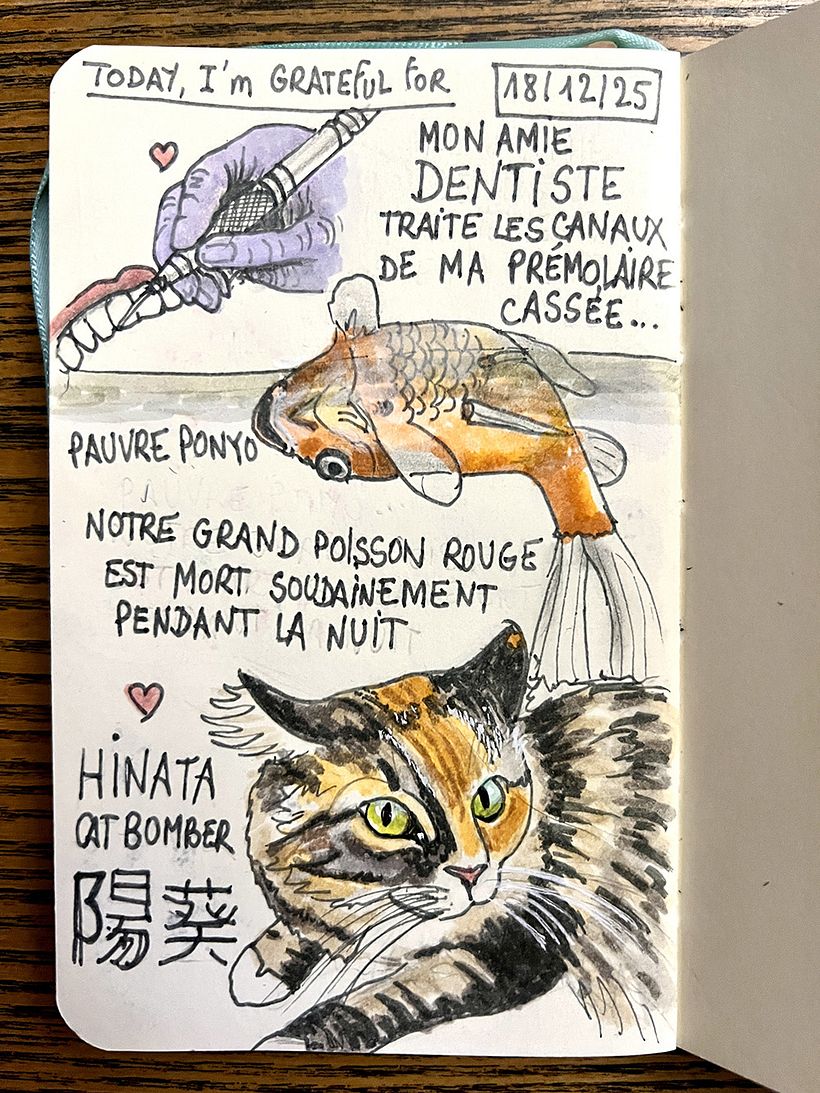 TODAY, I'm GRATEFUL FOR
18/12/25
MON AMIE
DENTISTE
TRAITE LES CANAUX
DE MA PRÉMOLAIRE
CASSÉE...
PAUVRE PONYO
NOTRE GRAND POISSON ROUGE
EST MORT SOUDAINEMENT
PENDANT LA NUIT
HINATA
CAT BOMBER
陽葵